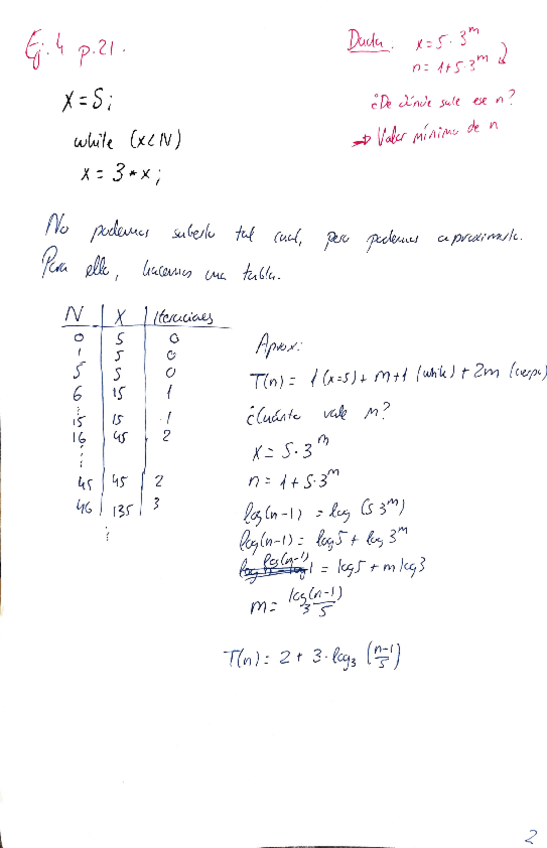 Ej. 4 p.21.
Duda. x = 5 · 3^m
n = 1 + 5 · 3^m
¿De dónde sale ese n?
→ Valor mínimo de n
x = 5;
while (x < N)
x = 3 * x;
No podemos saberlo tal cual, pero podemos aproximarlo.
Para ello, hacemos una tabla.
N | X | Iteraciones
0 5 0
1 5 0
5 5 0
6 15 1
⋮
15 15 1
16 45 2
⋮
45 45 2
46 135 3
⋮
Aprox:
T(n) = 1 (x=5) + m+1 (while) + 2m (cuerpo)
¿Cuánto vale m?
x = 5 · 3^m
n = 1 + 5 · 3^m
log(n-1) = log (5 3^m)
log(n-1) = log 5 + log 3^m
log(n-1) = log 5 + m log 3
m = log_3 (n-1)/5
T(n) = 2 + 3 · log_3 ((n-1)/5)
2